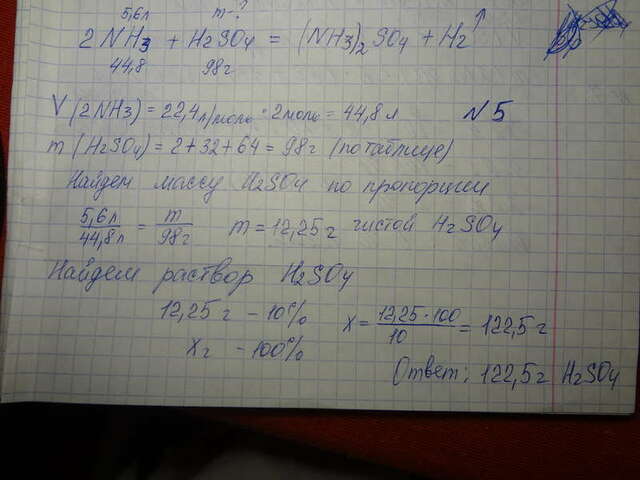 5,6л m-?
2 NH3 + H2SO4 = (NH3)2 SO4 + H2↑
44,8 98г
V(2NH3) = 22,4л/моль · 2моль = 44,8 л N5
m (H2SO4) = 2+32+64 = 98г (по таблице)
Найдем массу H2SO4 по пропорции
5,6л/44,8л = m/98г m = 12,25г чистой H2SO4
Найдем раствор H2SO4
12,25г - 10% x = 12,25·100/10 = 122,5г
xг - 100%
Ответ: 122,5г H2SO4